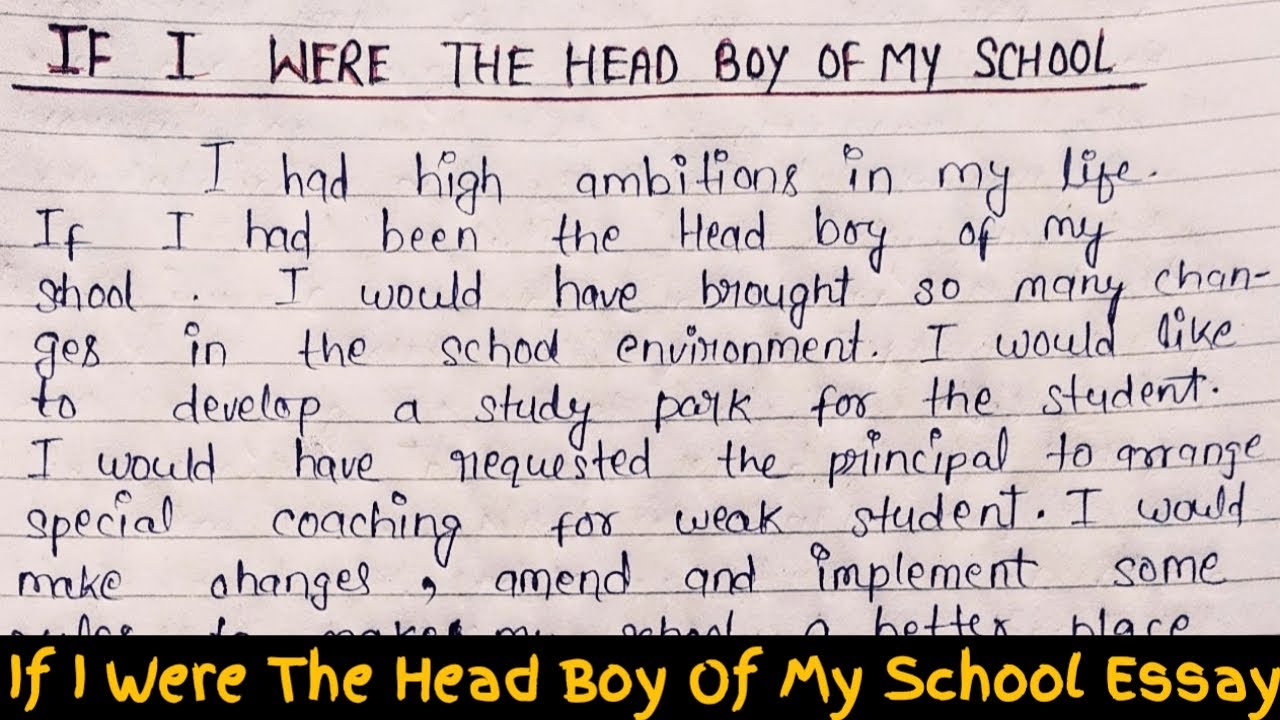 IF I WERE THE HEAD BOY OF MY SCHOOL
I had high ambitions in my life.
If I had been the Head boy of my
school . I would have brought so many chan-
ges in the school environment. I would like
to develop a study park for the student.
I would have requested the principal to arrange
special coaching for weak student. I would
make changes , amend and implement some
rules to makes my school a better place
If I Were The Head Boy Of My School Essay